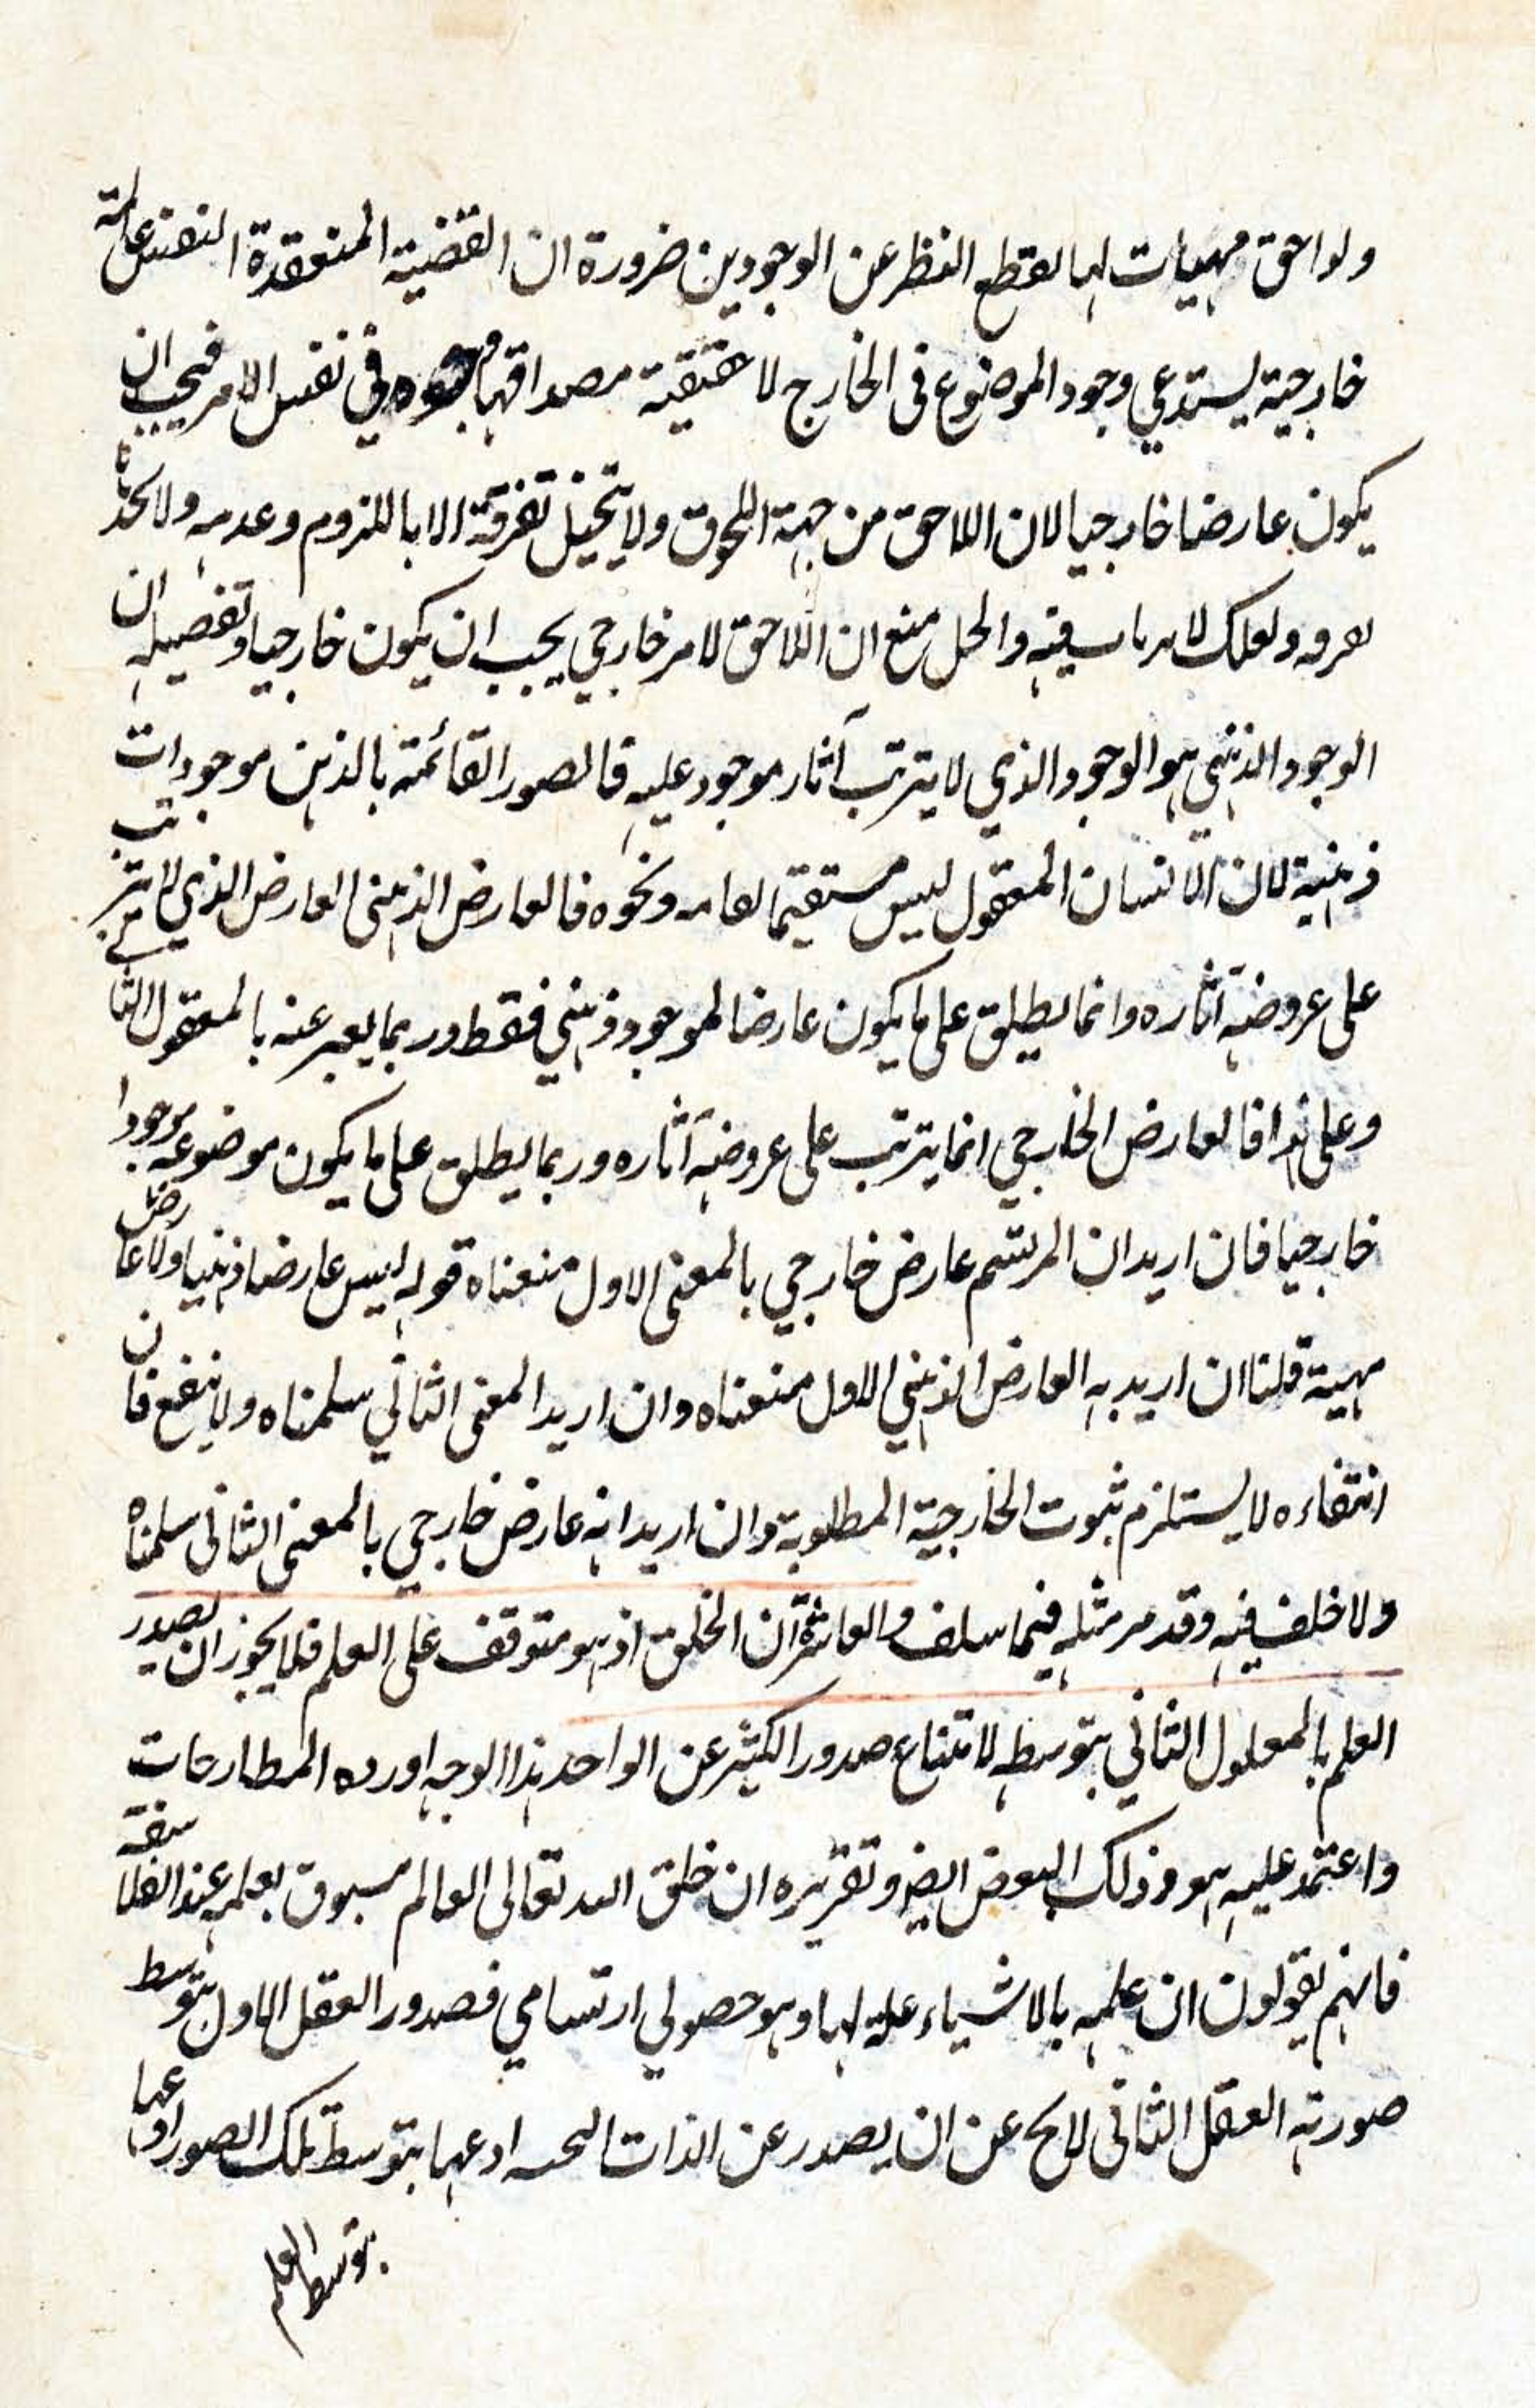 ولواحق مهيات لها لقطع النظر عن الوجودين ضرورة ان القضية المنعقدة النفس عالمة
خارجية يستدعي وجود الموضوع فى الخارج لا حقيقية مصداقها في نفس الامر فيجب ان
يكون عارضا خارجيا لان اللاحق من جهة اللحوق ولا يتخيل تفرقة الا باللزوم وعدمه ولا
ولعلك فيه والحل منع ان اللاحق لامر خارجي يجب ان يكون خارجيا وتفصيله ان
الوجود الذهني هو الوجود الذي لا يترتب آثار موجود عليه فالصور القائمة بالذهن موجودات
ذهنية لان الانسان المعقول ليس مستقيما لعامه ونحوه فالعارض الذهني العارض الذي لا يترتب
على عروضه آثاره وانما يطلق على ما يكون عارضا لموجود ذهني فقط وربما يعبر عنه بالمعقول الثاني
وعلى هذا فالعارض الخارجي انما يترتب على عروضه آثاره وربما يطلق على ما يكون موضوعه موجودا
خارجيا فان اريد ان المرتسم عارض خارجي بالمعنى الاول منعناه قوله ليس عارضا ذهنيا ولا عارض
مهية قلنا ان اريد به العارض الذهني الاول منعناه وان اريد المعنى الثاني سلمناه ولا ينفع فان
انتفاءه لا يستلزم ثبوت الخارجية المطلوبة وان اريد انه عارض خارجي بالمعنى الثانى سلمناه
ولا خلف فيه وقد مر مثله فيما سلف والعاشرة ان الخلق اذ هو متوقف على العلم فلا يجوز ان يصدر
العلم بالمعلول الثاني بتوسطه لامتناع صدور الكثير عن الواحد هذا الوجه اورده المطارحات
واعتمد عليه هو وذلك البعض ايضا وتقريره ان خلق الله تعالى العالم مسبوق بعلمه عند الفلاسفة
فانهم يقولون ان علمه بالاشياء علة لها وهو حصولي ارتسامي فصدور العقل الاول بتوسط
صورته العقل الثانى لا يخ عن ان يصدر عن الذات او عنها بتوسط تلك الصور او عنها
بتوسط العلم